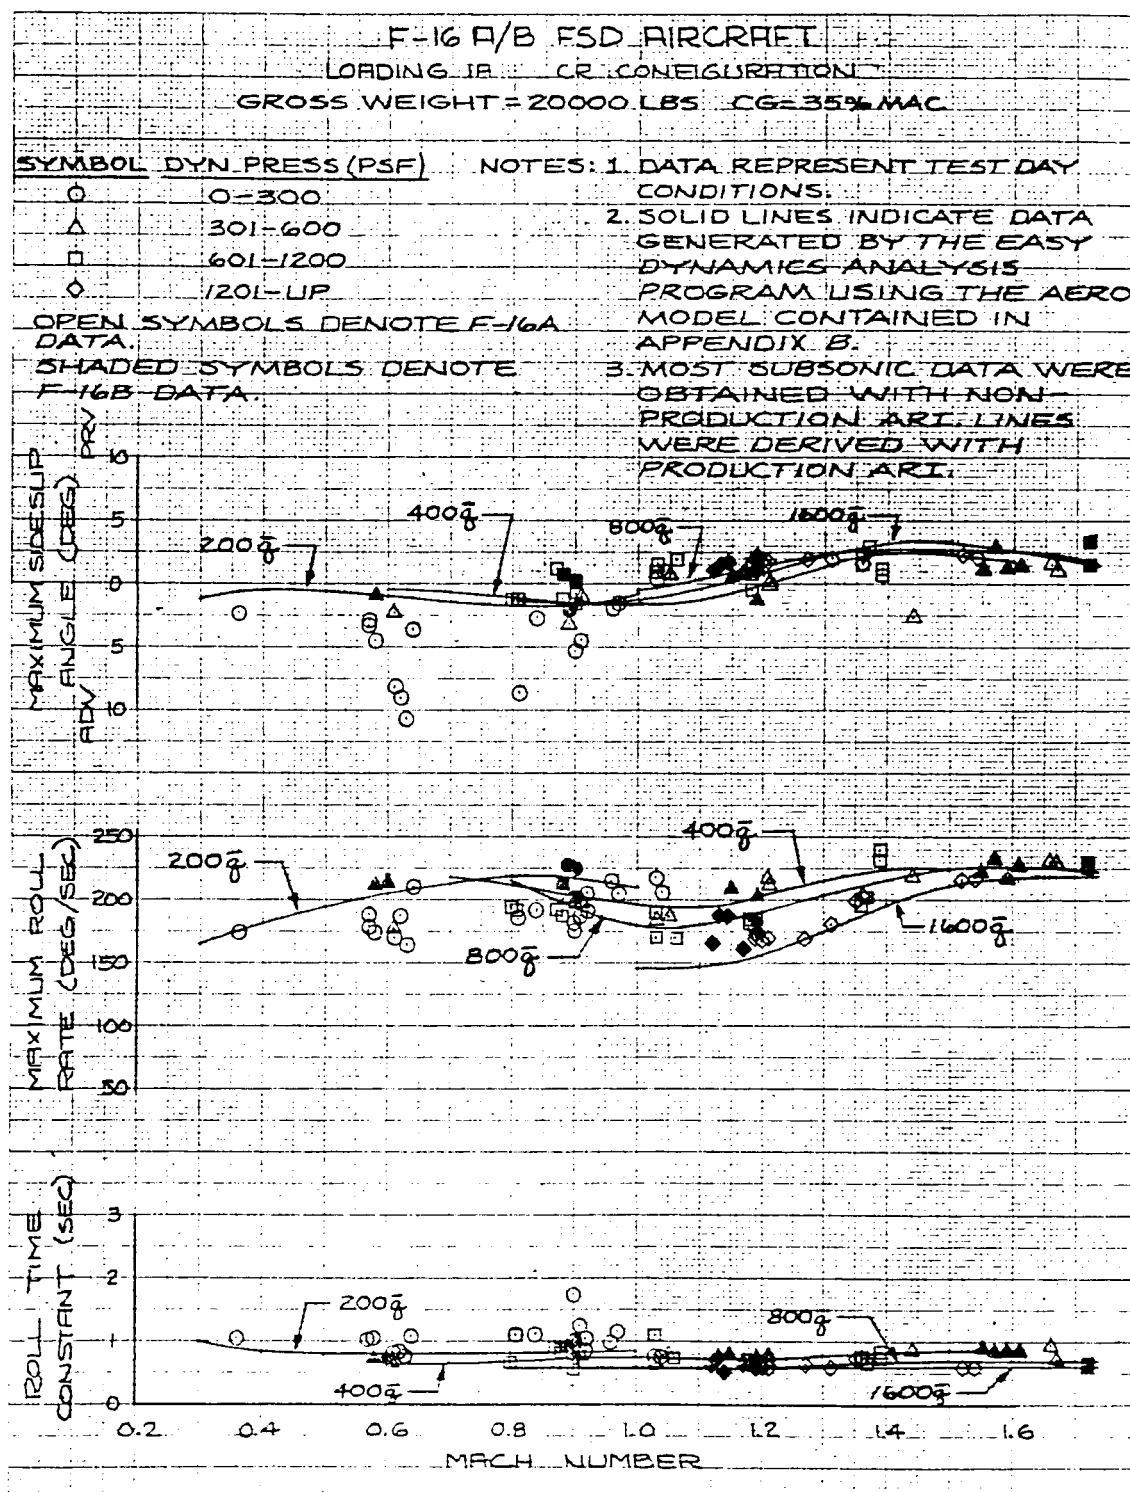 F-16 A/B FSD AIRCRAFT
LOADING 1A CR CONFIGURATION
GROSS WEIGHT = 20000 LBS CG=35% MAC
SYMBOL DYN PRESS (PSF)
0-300
301-600
601-1200
1201-UP
OPEN SYMBOLS DENOTE F-16A
DATA.
SHADED SYMBOLS DENOTE
F-16B DATA.
NOTES: 1. DATA REPRESENT TEST DAY
CONDITIONS.
2. SOLID LINES INDICATE DATA
GENERATED BY THE EASY
DYNAMICS ANALYSIS
PROGRAM USING THE AERO
MODEL CONTAINED IN
APPENDIX B.
3. MOST SUBSONIC DATA WERE
OBTAINED WITH NON-
PRODUCTION ARI. LINES
WERE DERIVED WITH
PRODUCTION ARI.
MAXIMUM SIDESLIP
ANGLE (DEG)
ADV PRV
10
5
0
5
10
200q̄
400q̄
800q̄
1600q̄
MAXIMUM ROLL
RATE (DEG/SEC)
250
200
150
100
50
200q̄
800q̄
400q̄
1600q̄
ROLL TIME
CONSTANT (SEC)
3
2
1
0
200q̄
400q̄
800q̄
1600q̄
0.2 0.4 0.6 0.8 1.0 1.2 1.4 1.6
MACH NUMBER